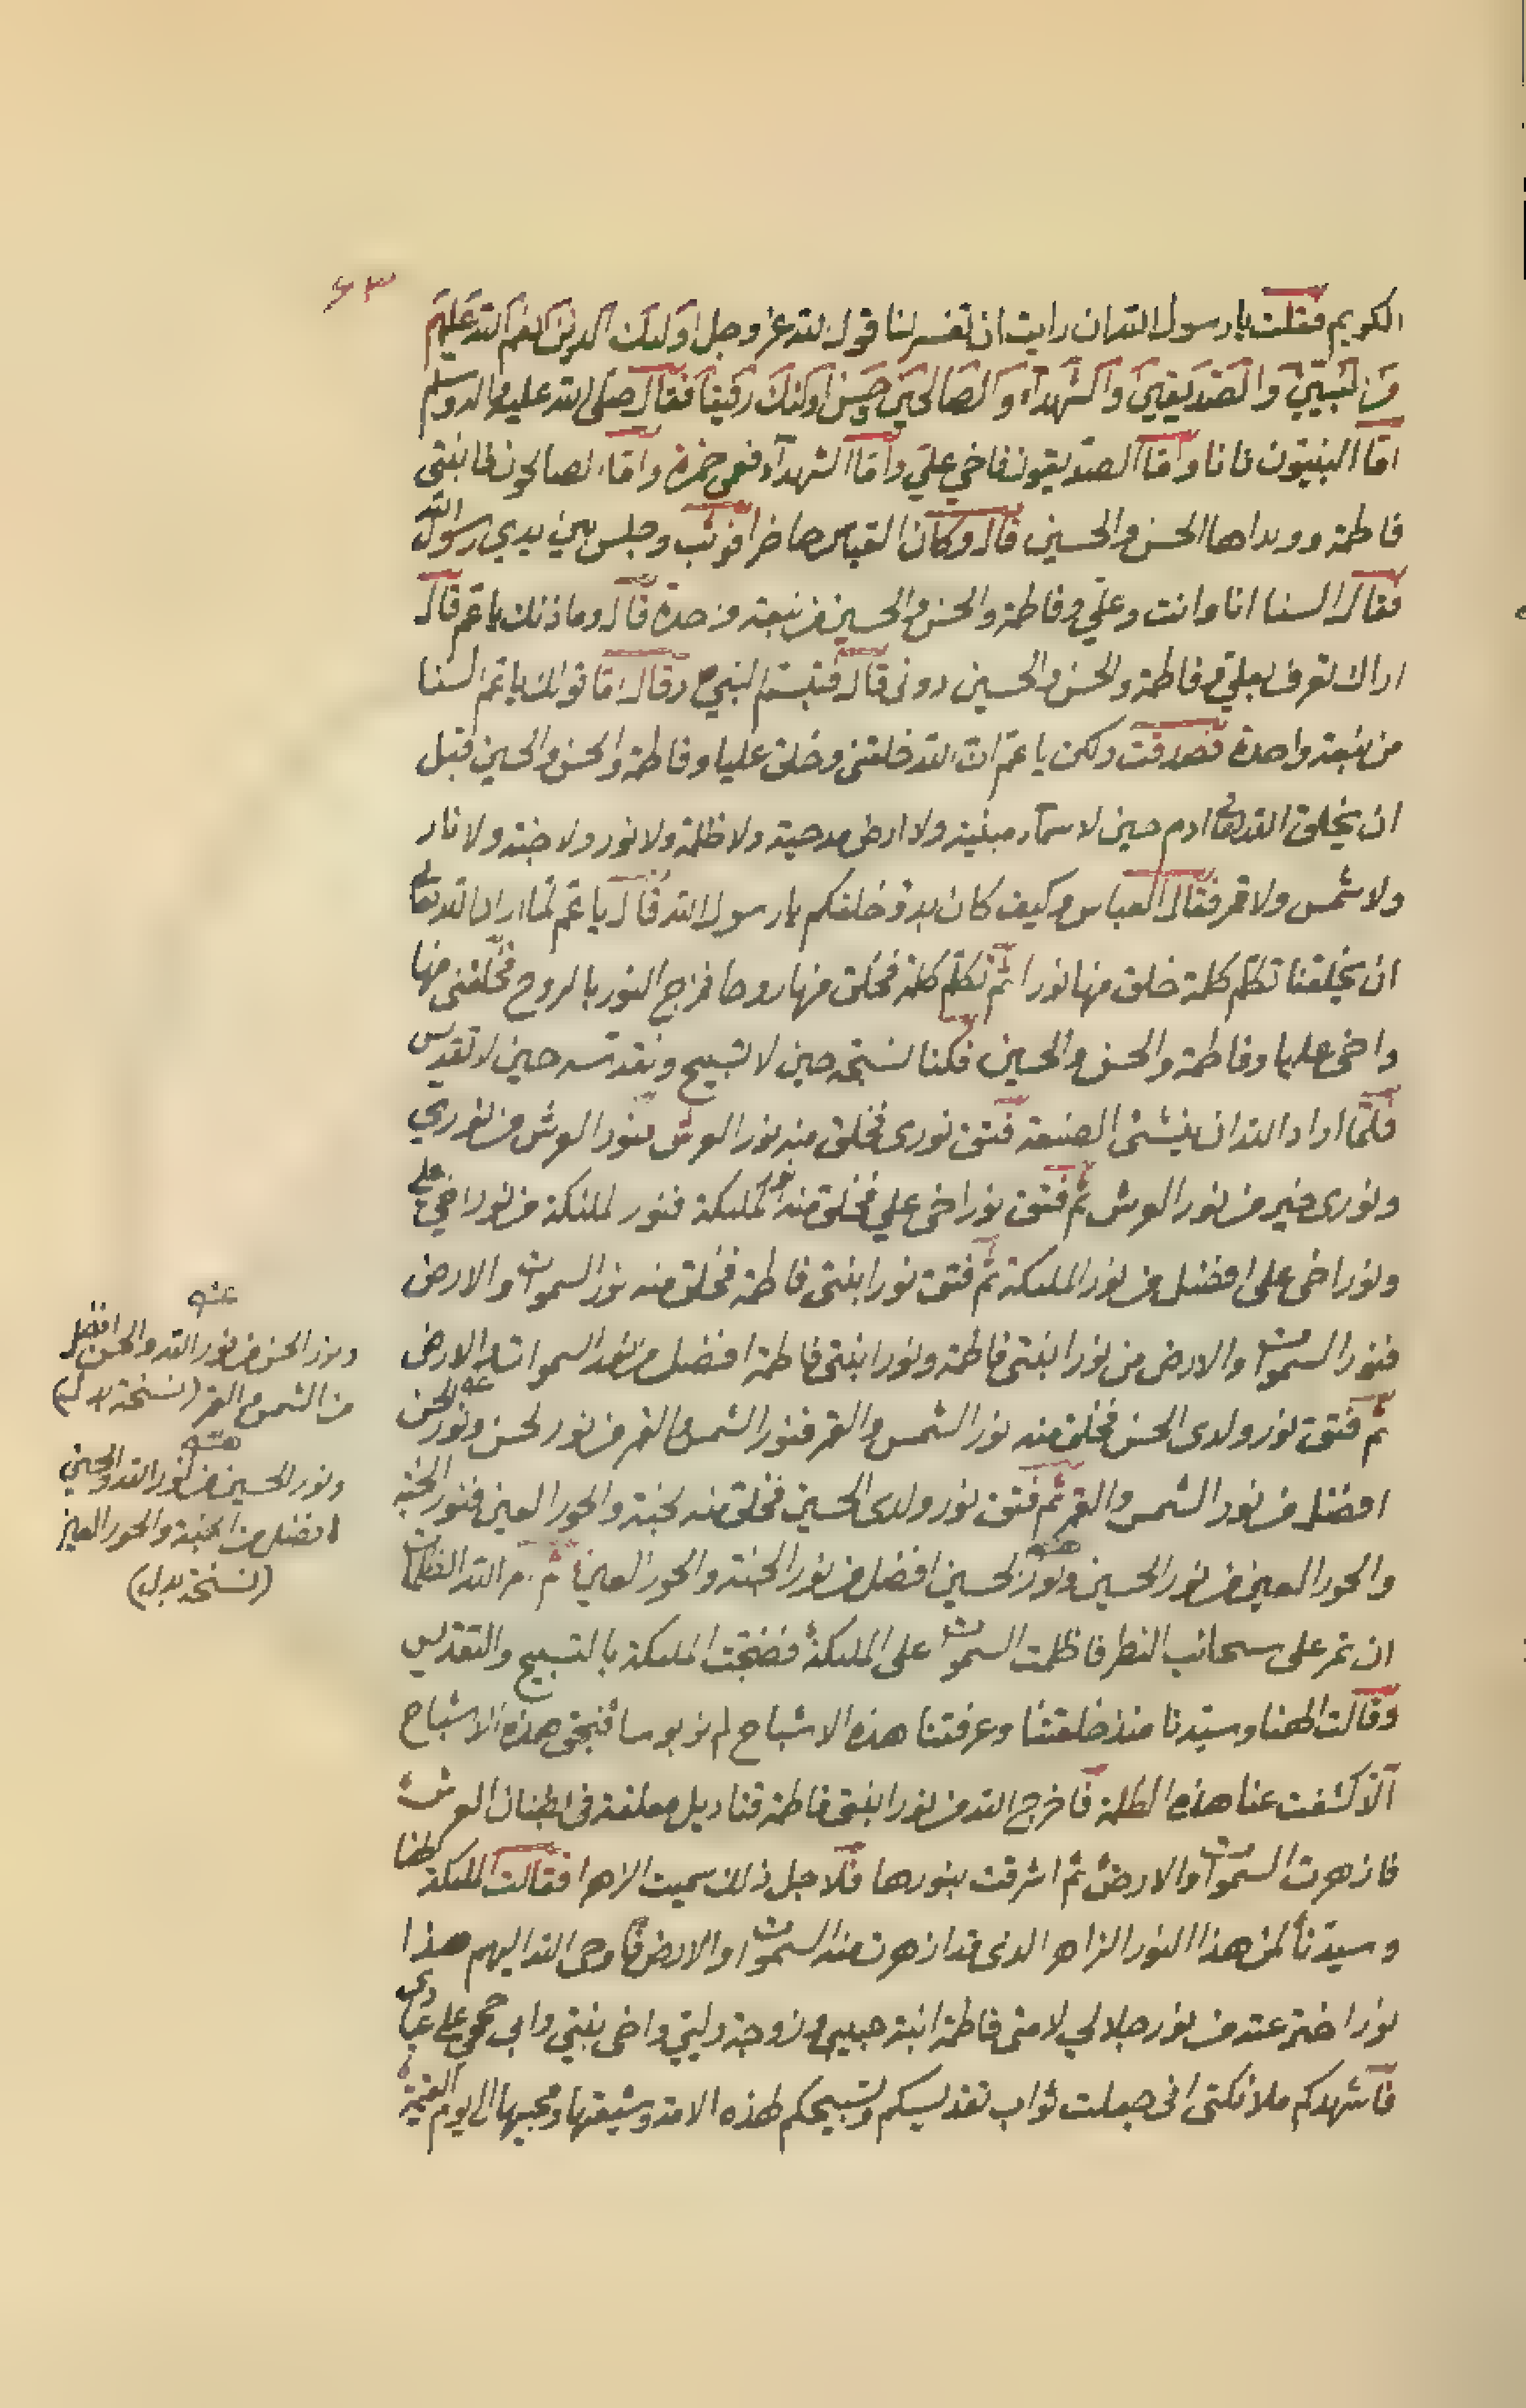 ٦٣
الكريم فقلت يا رسول الله ان رايت ان تفسر لنا قول الله عز وجل اولئك الذين انعم الله عليهم
من النبيين والصديقين والشهداء والصالحين وحسن اولئك رفيقا فقال صلى الله عليه واله وسلم
امّا النبيّون فانا وامّا الصديقون فاخي علي وامّا الشهدآء فعمي حمزة وامّا الصالحون فابنتي
فاطمة وولداها الحسن والحسين قال وكان العباس حاضرا فوثب وجلس بين يدي رسول الله
فقال السنا انا وانت وعلي وفاطمة والحسن والحسين من نبعة واحدة قال وما ذلك يا عم قال
اراك تعرف بعلي وفاطمة والحسن والحسين دوني قال فتبسّم النبي وقال امّا قولك يا عمّ السنا
من نبعة واحدة فصدقت ولكن يا عمّ انّ الله خلقني وخلق عليا وفاطمة والحسن والحسين قبل
ان يخلق الله تعالى ادم حين لا سمآء مبنية ولا ارض مدحية ولا ظلمة ولا نور ولا جنة ولا نار
ولا شمس ولا قمر فقال العباس وكيف كان بدؤ خلقكم يا رسول الله فقال يا عمّ لمّا اراد الله تعالى
ان يخلقنا تكلّم كلمة خلق منها نورا ثمّ تكلّم كلمة فخلق منها روحا فمزج النور بالروح فخلقني منها
واخي عليا وفاطمة والحسن والحسين فكنا نسبّحه حين لا تسبيح ونقدّسه حين لا تقديس
فلمّا اراد الله ان ينشئ الصنعة فتق نوري فخلق منه نور العرش فنور العرش من نوري
ونوري خير من نور العرش ثمّ فتق نور اخي علي فخلق منه نور الملئكة فنور الملئكة من نور اخي علي
ونور اخي علي افضل من نور الملئكة ثمّ فتق نور ابنتي فاطمة فخلق منه نور السموات والارض
فنور السموات والارض من نور ابنتي فاطمة ونور ابنتي فاطمة افضل من نور السموات والارض
ثمّ فتق نور ولدي الحسن فخلق منه نور الشمس والقمر فنور الشمس والقمر من نور الحسن ونور الحسن
افضل من نور الشمس والقمر ثم فتق نور ولدي الحسين فخلق منه الجنة والحور العين فنور الجنة
والحور العين من نور الحسين ونور الحسين افضل من نور الجنة والحور العين ثم امر الله الظلمات
ان تمر على سحائب النظر فاظلمت السموات على الملئكة فضجّت الملئكة بالتسبيح والتقديس
وقالت الهنا وسيّدنا منذ خلقتنا وعرفتنا هذه الاشباح لم نر بوسا فبحق هذه الاشباح
الّا كشفت عنا هذه الظلمة فاخرج الله من نور ابنتي فاطمة قناديل معلقة في بطنان العرش
فازهرت السموات والارض ثم اشرقت بنورها فلاجل ذلك سميت الزهرا فقالت الملئكة الهنا
وسيدنا لمن هذا النور الزاهر الذي قد ازهرت منه السموات والارض فاوحى الله اليهم هذا
نور اخترعته من نور جلالي لامتي فاطمة ابنة حبيبي وزوجة وليّي واخي نبيّي وابي حججي على عبادي
فاشهدكم ملائكتي اني جعلت ثواب تقديسكم وتسبيحكم لهذه الامة وشيعتها ومحبيها الى يوم القيمة
ونور الحسن من نور الله والحسن افضل
من الشمس والقمر (نسخة بدل)
ونور الحسين من نور الله والحسين
افضل من الجنة والحور العين
(نسخة بدل)